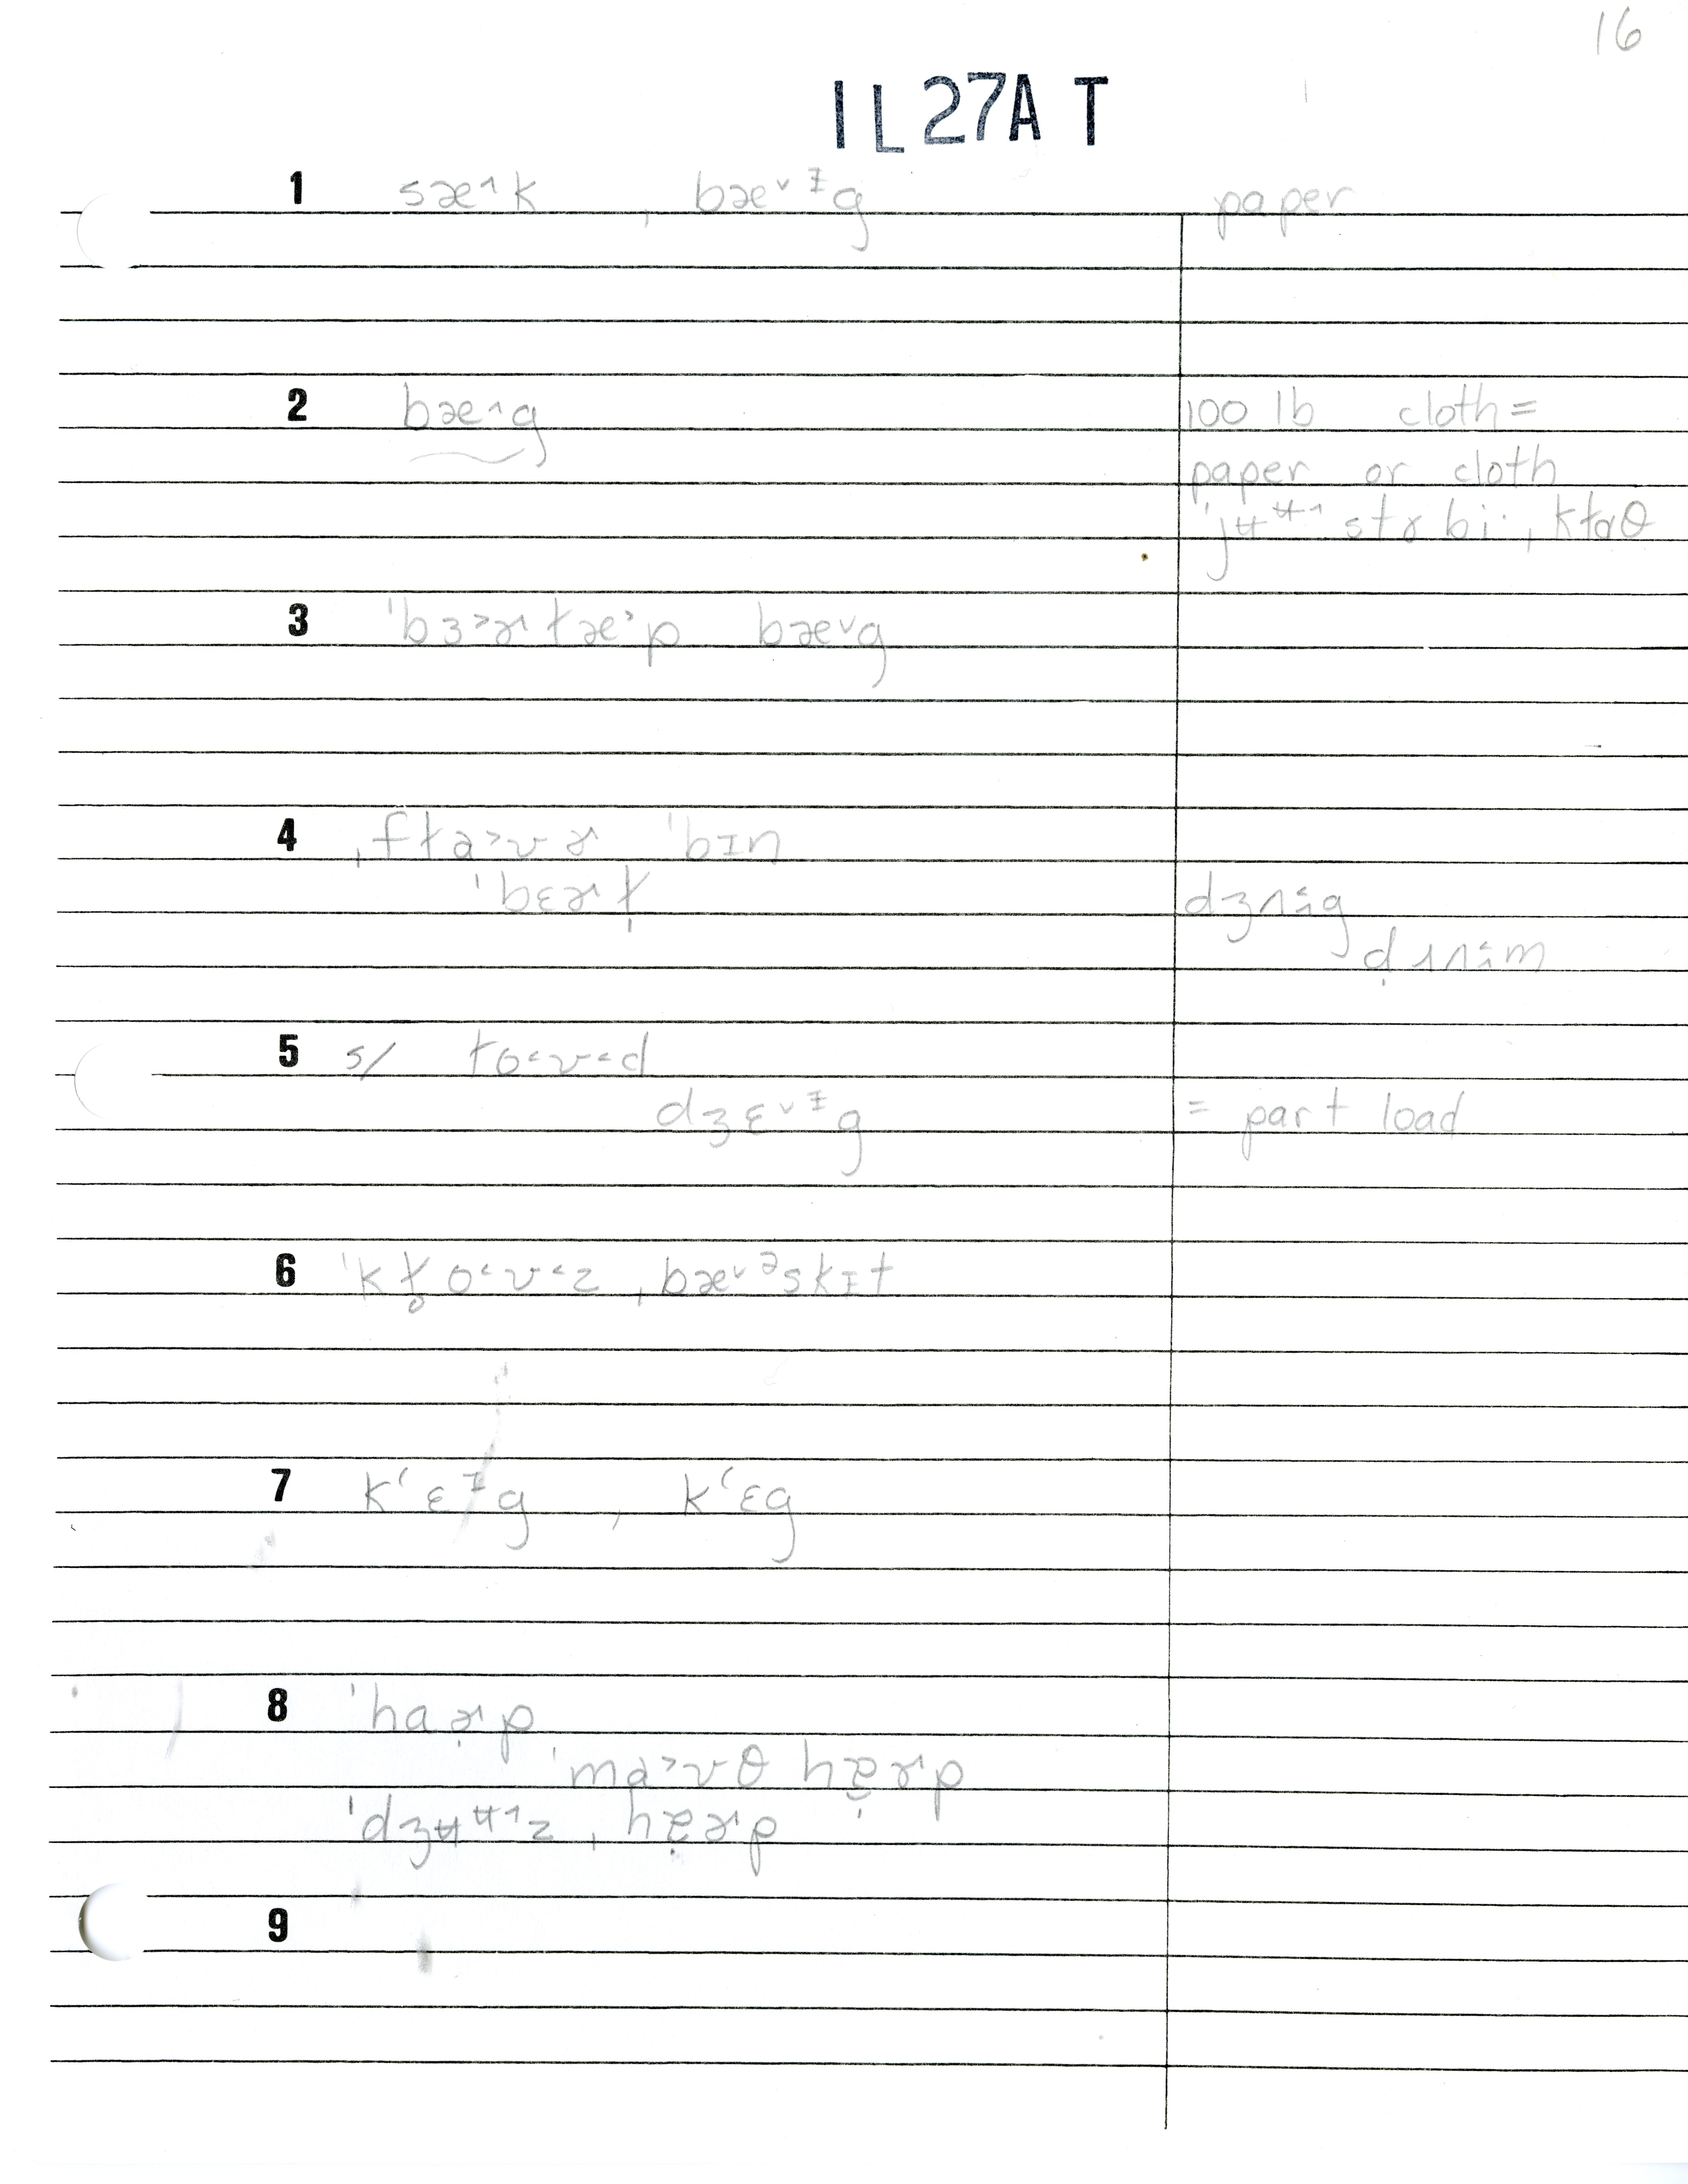 16
IL27AT
1 sæ˄k , bæ˅ᵻg paper
2 bæ˄g 100 lb cloth =
paper or cloth
'jʉᵾ˄stɚ bi· , kɫɑθ
3 'bɜ˃ɚɫæ˃p bæ˅g
4 ˌfɫa˃ʊɚ 'bɪn
'bɛɚɫ̩ dʒʌg
dɹʌm
5 s/ ɫo˂ʊ˂d
dʒɛ˅ᵻg = part load
6 'kɫ̥o˂ʊ˂z ˌbæ˅ᵊskɪt
7 k‘ɛᵻg , k‘ɛg
8 'hɑɚp
'maʊθ hɑɚp
'dʒʉᵾ˄z ˌhɑɚp
9